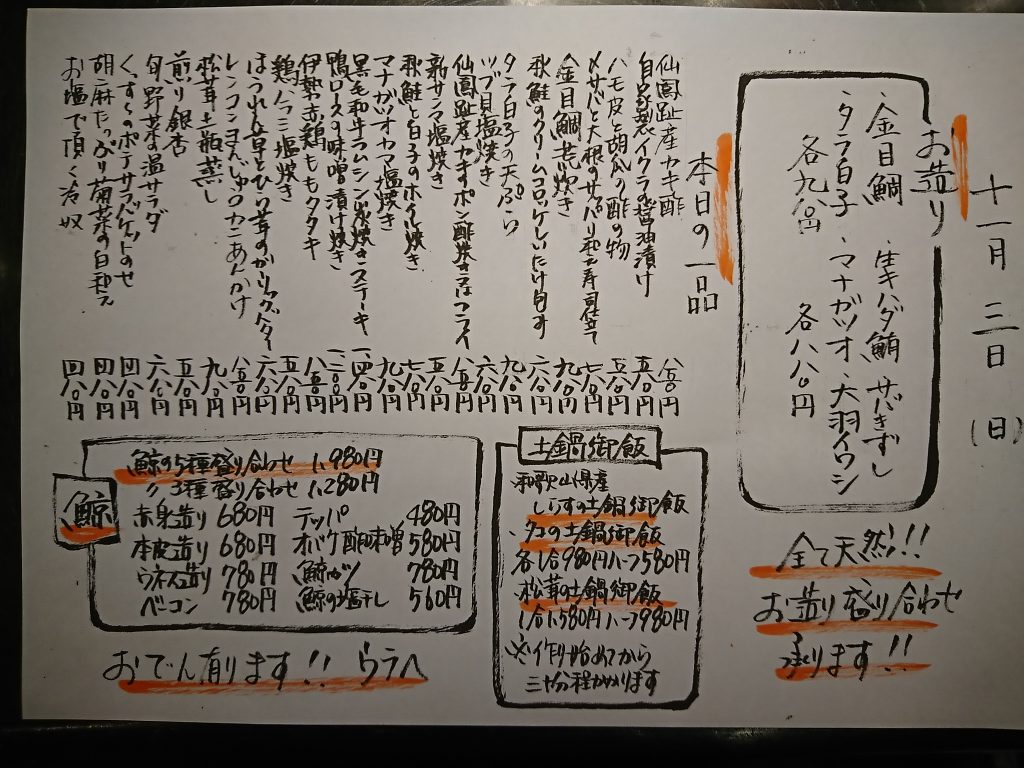 十一月三日(日)
お造り
金目鯛 生キハダ鮪 サバきずし
タラ白子 マナガツオ 大羽イワシ
各九八〇円 各八八〇円
全て天然!!!
お造り盛り合わせ
承ります!!
本日の一品
仙鳳趾産カキ酢 八八〇円
自家製イクラの醤油漬け 五八〇円
ハモ皮と胡瓜の酢の物 五八〇円
〆サバと大根のサッパリ和え寿司仕立て 七八〇円
金目鯛荒炊き 九八〇円
秋鮭のクリームコロッケしいたけ
タラ白子の天ぷら 九八〇円
ツブ貝塩焼き 六八〇円
仙鳳趾産カキすポン酢焼き又はフライ
新サンマ塩焼き
秋鮭と白子のホイル焼き 七八〇円
マナガツオカマ塩焼き 九八〇円
黒毛和牛ラムシン炭焼きステーキ
鴨ロースの味噌漬け焼き
伊勢赤鶏ももタタキ
鶏ハラミ塩焼き 五八〇円
レンコンまんじゅうカニあんかけ
松茸土瓶蒸し 九八〇円
煎り銀杏 五八〇円
旬野菜の温サラダ 六八〇円
くんたまのポテサラバケットのせ 四八〇円
胡麻たっぷり菊菜の白和え 四八〇円
お塩で頂く冷奴 四八〇円
土鍋御飯
和歌山県産
しらすの土鍋御飯
タコの土鍋御飯
各1合980円ハーフ580円
松茸の土鍋御飯
1合1,580円ハーフ980円
※作り始めてから
三十分程かかります
鯨
鯨の5種盛り合わせ 1,980円
〃3種盛り合わせ 1,280円
赤身造り 680円 テッパ 480円
本皮造り 680円 オバケ酢味噌 580円
ウネス造り 780円 鯨カツ 780円
ベーコン 780円 鯨の塩干し 560円
おでん有ります!! ウラへ